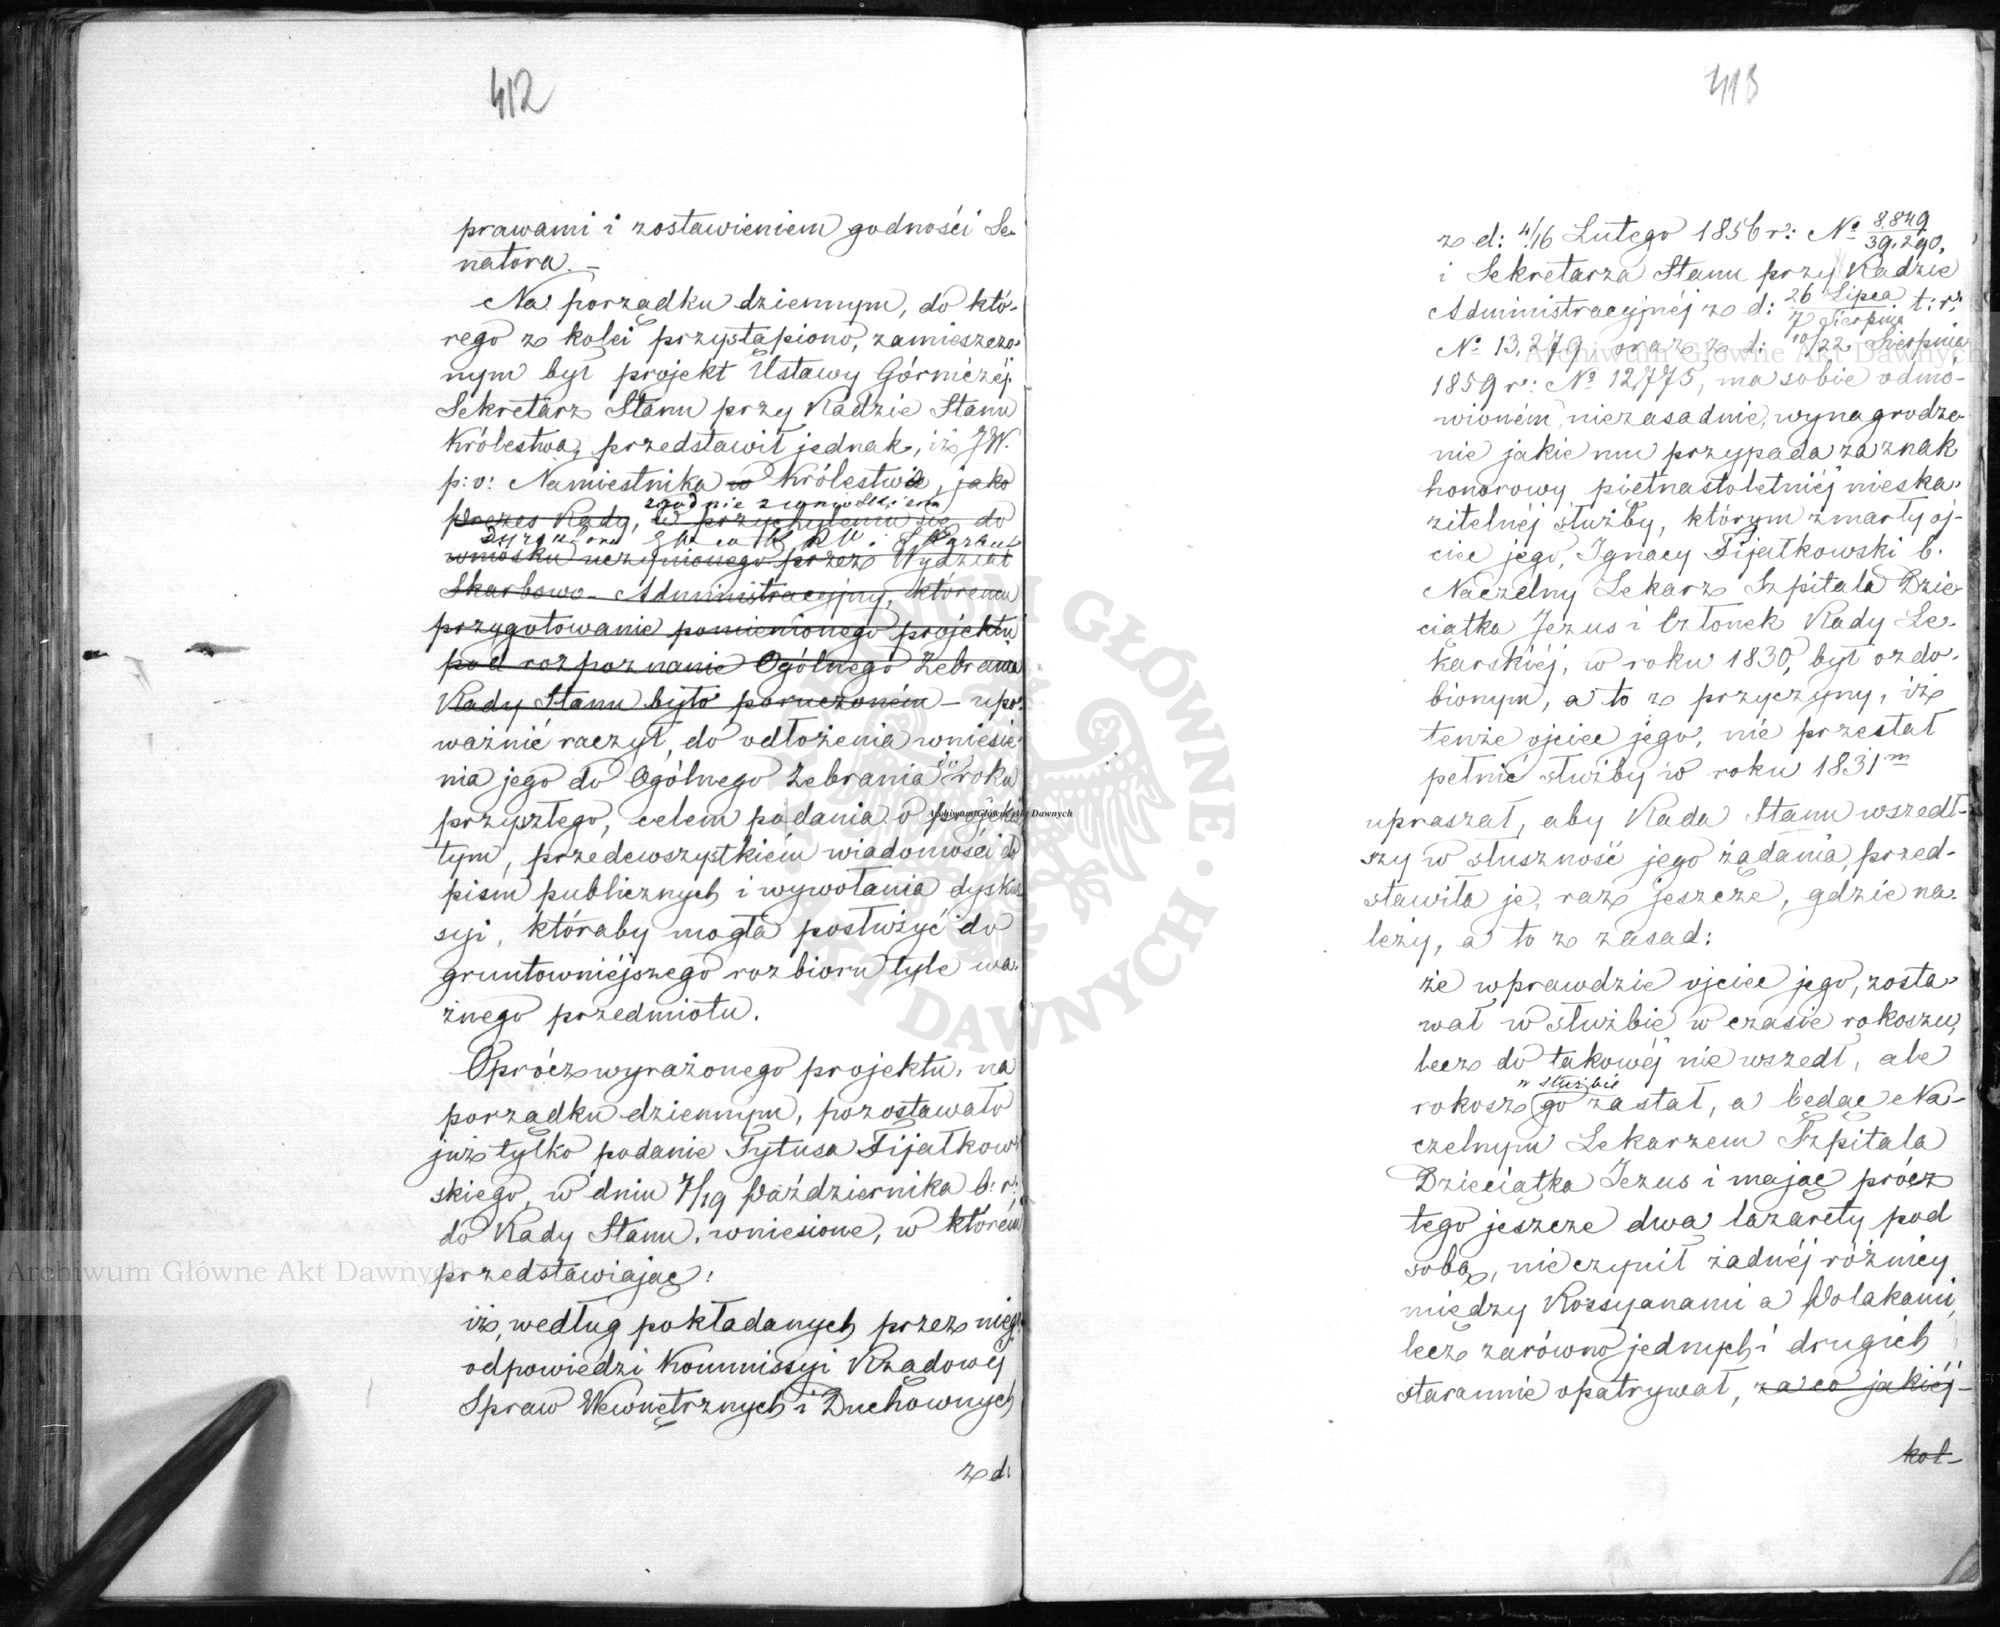 412
prawami i zostawieniem godności Se-
natora. –
Na porządku dziennym, do któ-
rego z kolei przystąpiono, zamieszczo-
nym był projekt Ustawy Górniczéj.
Sekretarz Stanu przy Radzie Stanu
Królestwa, przedstawił jednak, iż JW.
p: o: Namiestnika w Królestwie, jako
zgodnie z wnioskiem
Prezes Rady, w przychyleniu się do
Dyrektora Skarbu
wniosku uczynionego przez Wydział
Skarbowo-Administracyjny, któremu
przygotowanie pomienionego projektu
pod rozpoznanie Ogólnego Zebrania
Rady Stanu było poruczoném – upo-
ważnić raczył, do odłożenia wniesie-
nia jego do Ogólnego Zebrania roku
przyszłego, celem podania o projekcie
tym, przedewszystkiém wiadomości do
pism publicznych i wywołania dysku-
syi, któraby mogła posłużyć do
gruntowniéjszego rozbioru tyle wa-
żnego przedmiotu.
Oprócz wyrażonego projektu, na
porządku dziennym, pozostawało
już tylko podanie Tytusa Fijałkow-
skiego, w dniu 7/19 Października b: r:
do Rady Stanu, wniesione, w którem
przedstawiając:
iż, według pokładanych przez niego
odpowiedzi Kommissyi Rządowéj
Spraw Wewnętrznych i Duchownych
z d:
413
z d: 4/16 Lutego 1856 r: Nº 8,849/39,290,
i Sekretarza Stanu przy Radzie
Administracyjnéj z d: 26 Lipca/7 Sierpnia t: r:
Nº 13,249, oraz z d: 10/22 Sierpnia
1859 r: Nº 12,775, ma sobie odmó-
wioném, niezasadnie, wynagrodze-
nie jakie mu przypada za znak
honorowy piętnastoletniéj nieska-
zitelnéj służby, którym zmarły oj-
ciec jego, Ignacy Fijałkowski b.
Naczelny Lekarz Szpitala Dzie-
ciątka Jezus i Członek Rady Le-
karskiéj, w roku 1830, był ozdo-
bionym, a to z przyczyny, iż
tenże ojciec jego, nie przestał
pełnić służby w roku 1831m
upraszał, aby Rada Stanu wszedł-
szy w słuszność jego żądania, przed-
stawiła je, raz jeszcze, gdzie na-
leży, a to z zasad:
że wprawdzie ojciec jego, zosta-
wał w służbie w czasie rokoszu,
lecz do takowéj nie wszedł, ale
w służbie
rokosz go zastał, a będąc Na-
czelnym Lekarzem Szpitala
Dzieciątka Jezus i mając prócz
tego jeszcze dwa lazarety pod
sobą, nie czynił żadnéj różnicy
między Rossyanami a Polakami,
lecz zarówno jednych i drugich
starannie opatrywał, za co jakiéj-
kol-
Archiwum Główne Akt Dawnych
Archiwum Główne Akt Dawnych
Archiwum Główne Akt Dawnych
ARCHIWUM GŁÓWNE AKT DAWNYCH